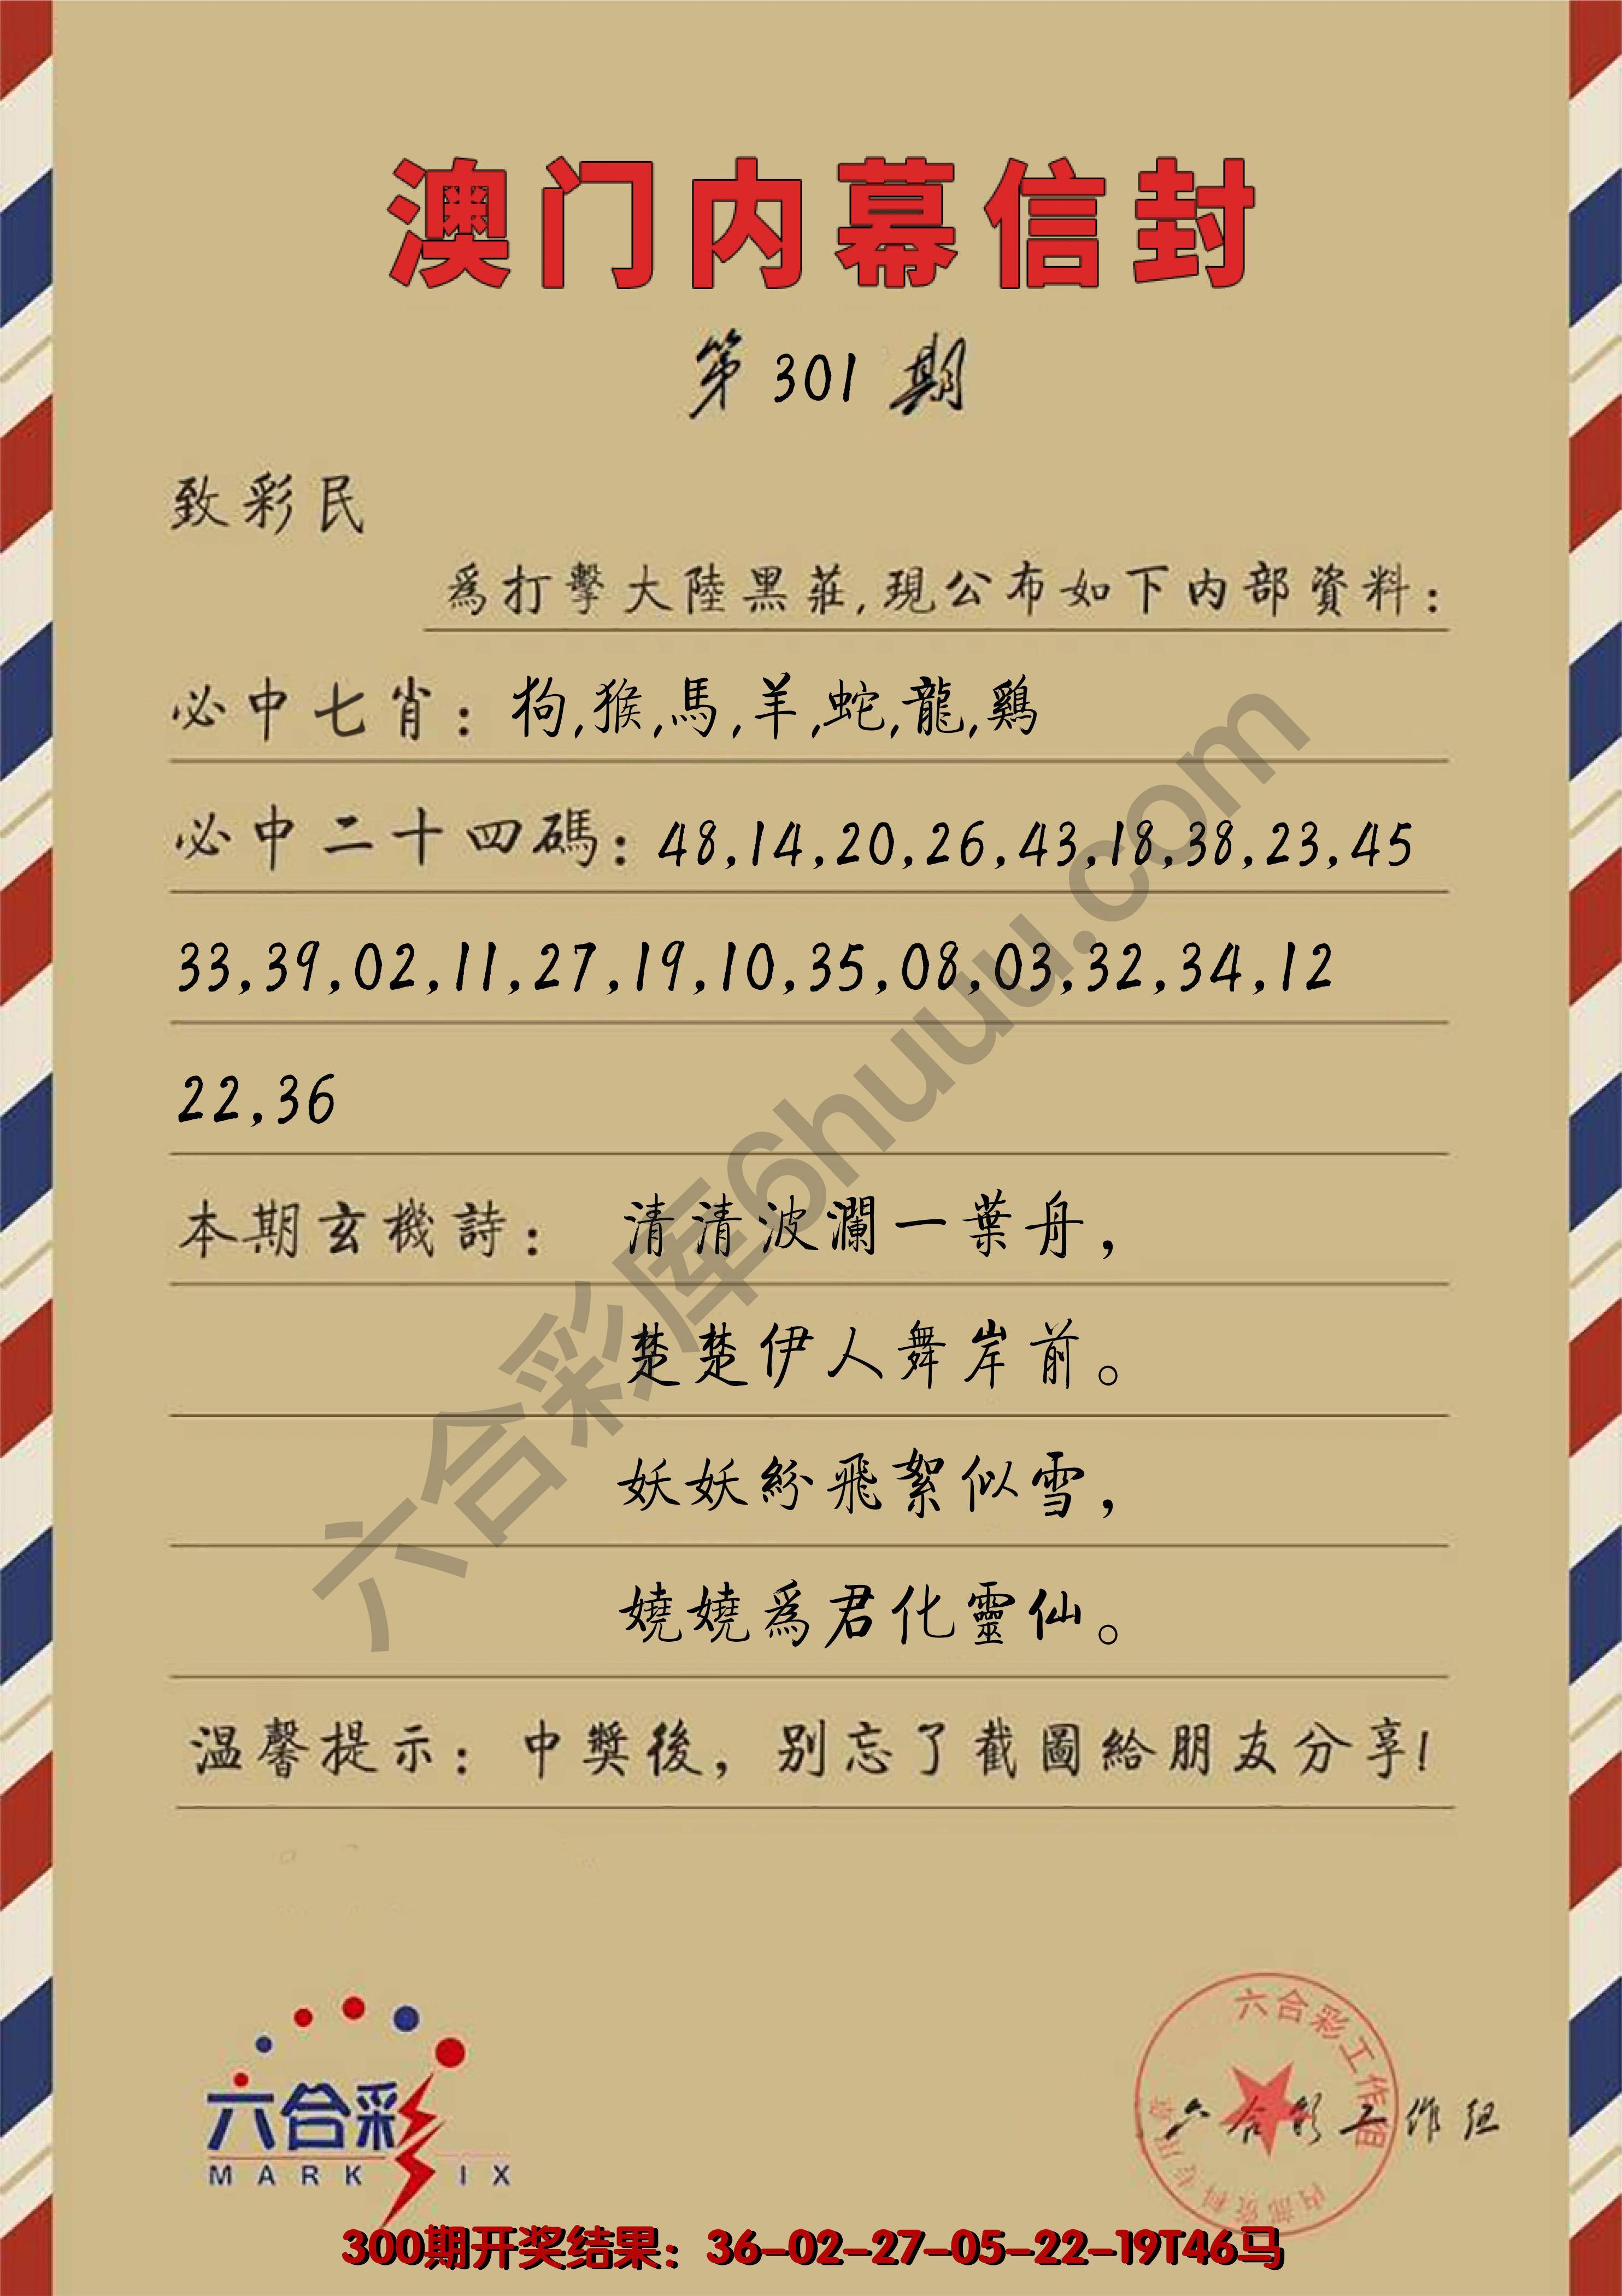 澳门内幕信封
第301期
致彩民
爲打擊大陸黑莊,現公布如下内部資料:
必中七肖:狗,猴,馬,羊,蛇,龍,鷄
必中二十四碼:48,14,20,26,43,18,38,23,45
33,39,02,11,27,19,10,35,08,03,32,34,12
22,36
本期玄機詩:清清波瀾一葉舟,
楚楚伊人舞岸前。
妖妖紛飛絮似雪,
嬈嬈爲君化靈仙。
温馨提示:中獎後,别忘了截圖給朋友分享!
六合彩库6huuu.com
六合彩
MARK IX
六合彩工作组
内部资料专用章
六合彩工作组
300期开奖结果:36-02-27-05-22-19T46马